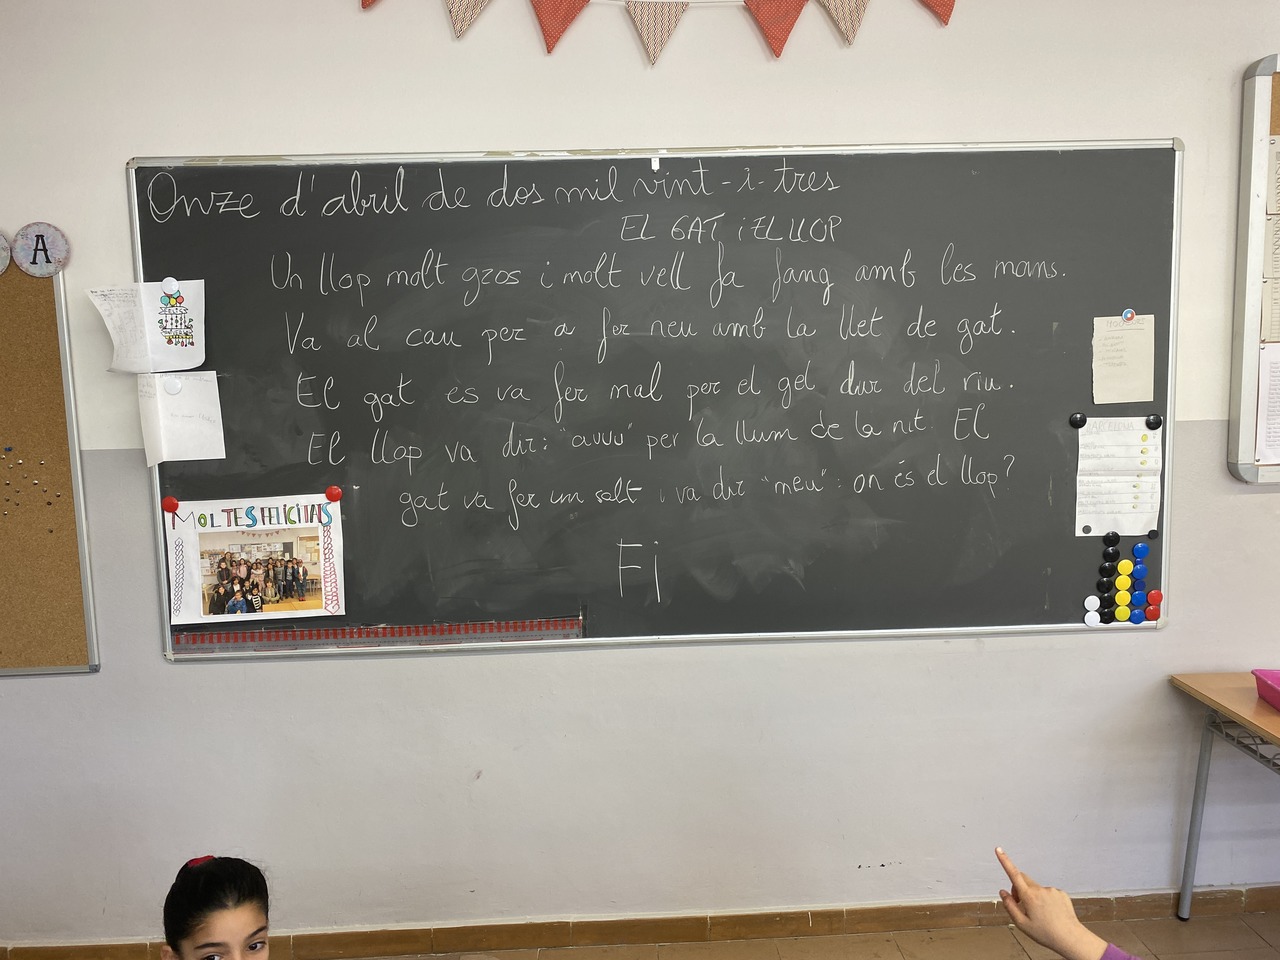 Onze d'abril de dos mil vint-i-tres
EL GAT i EL LLOP
Un llop molt gros i molt vell fa fang amb les mans.
Va al cau per a fer neu amb la llet de gat.
El gat es va fer mal per el gel dur del riu.
El llop va dir: "auuu" per la llum de la nit. El
gat va fer un salt i va dir "meu": on és el llop?
Fi
MOLTES FELICITATS
A
BARCELONA